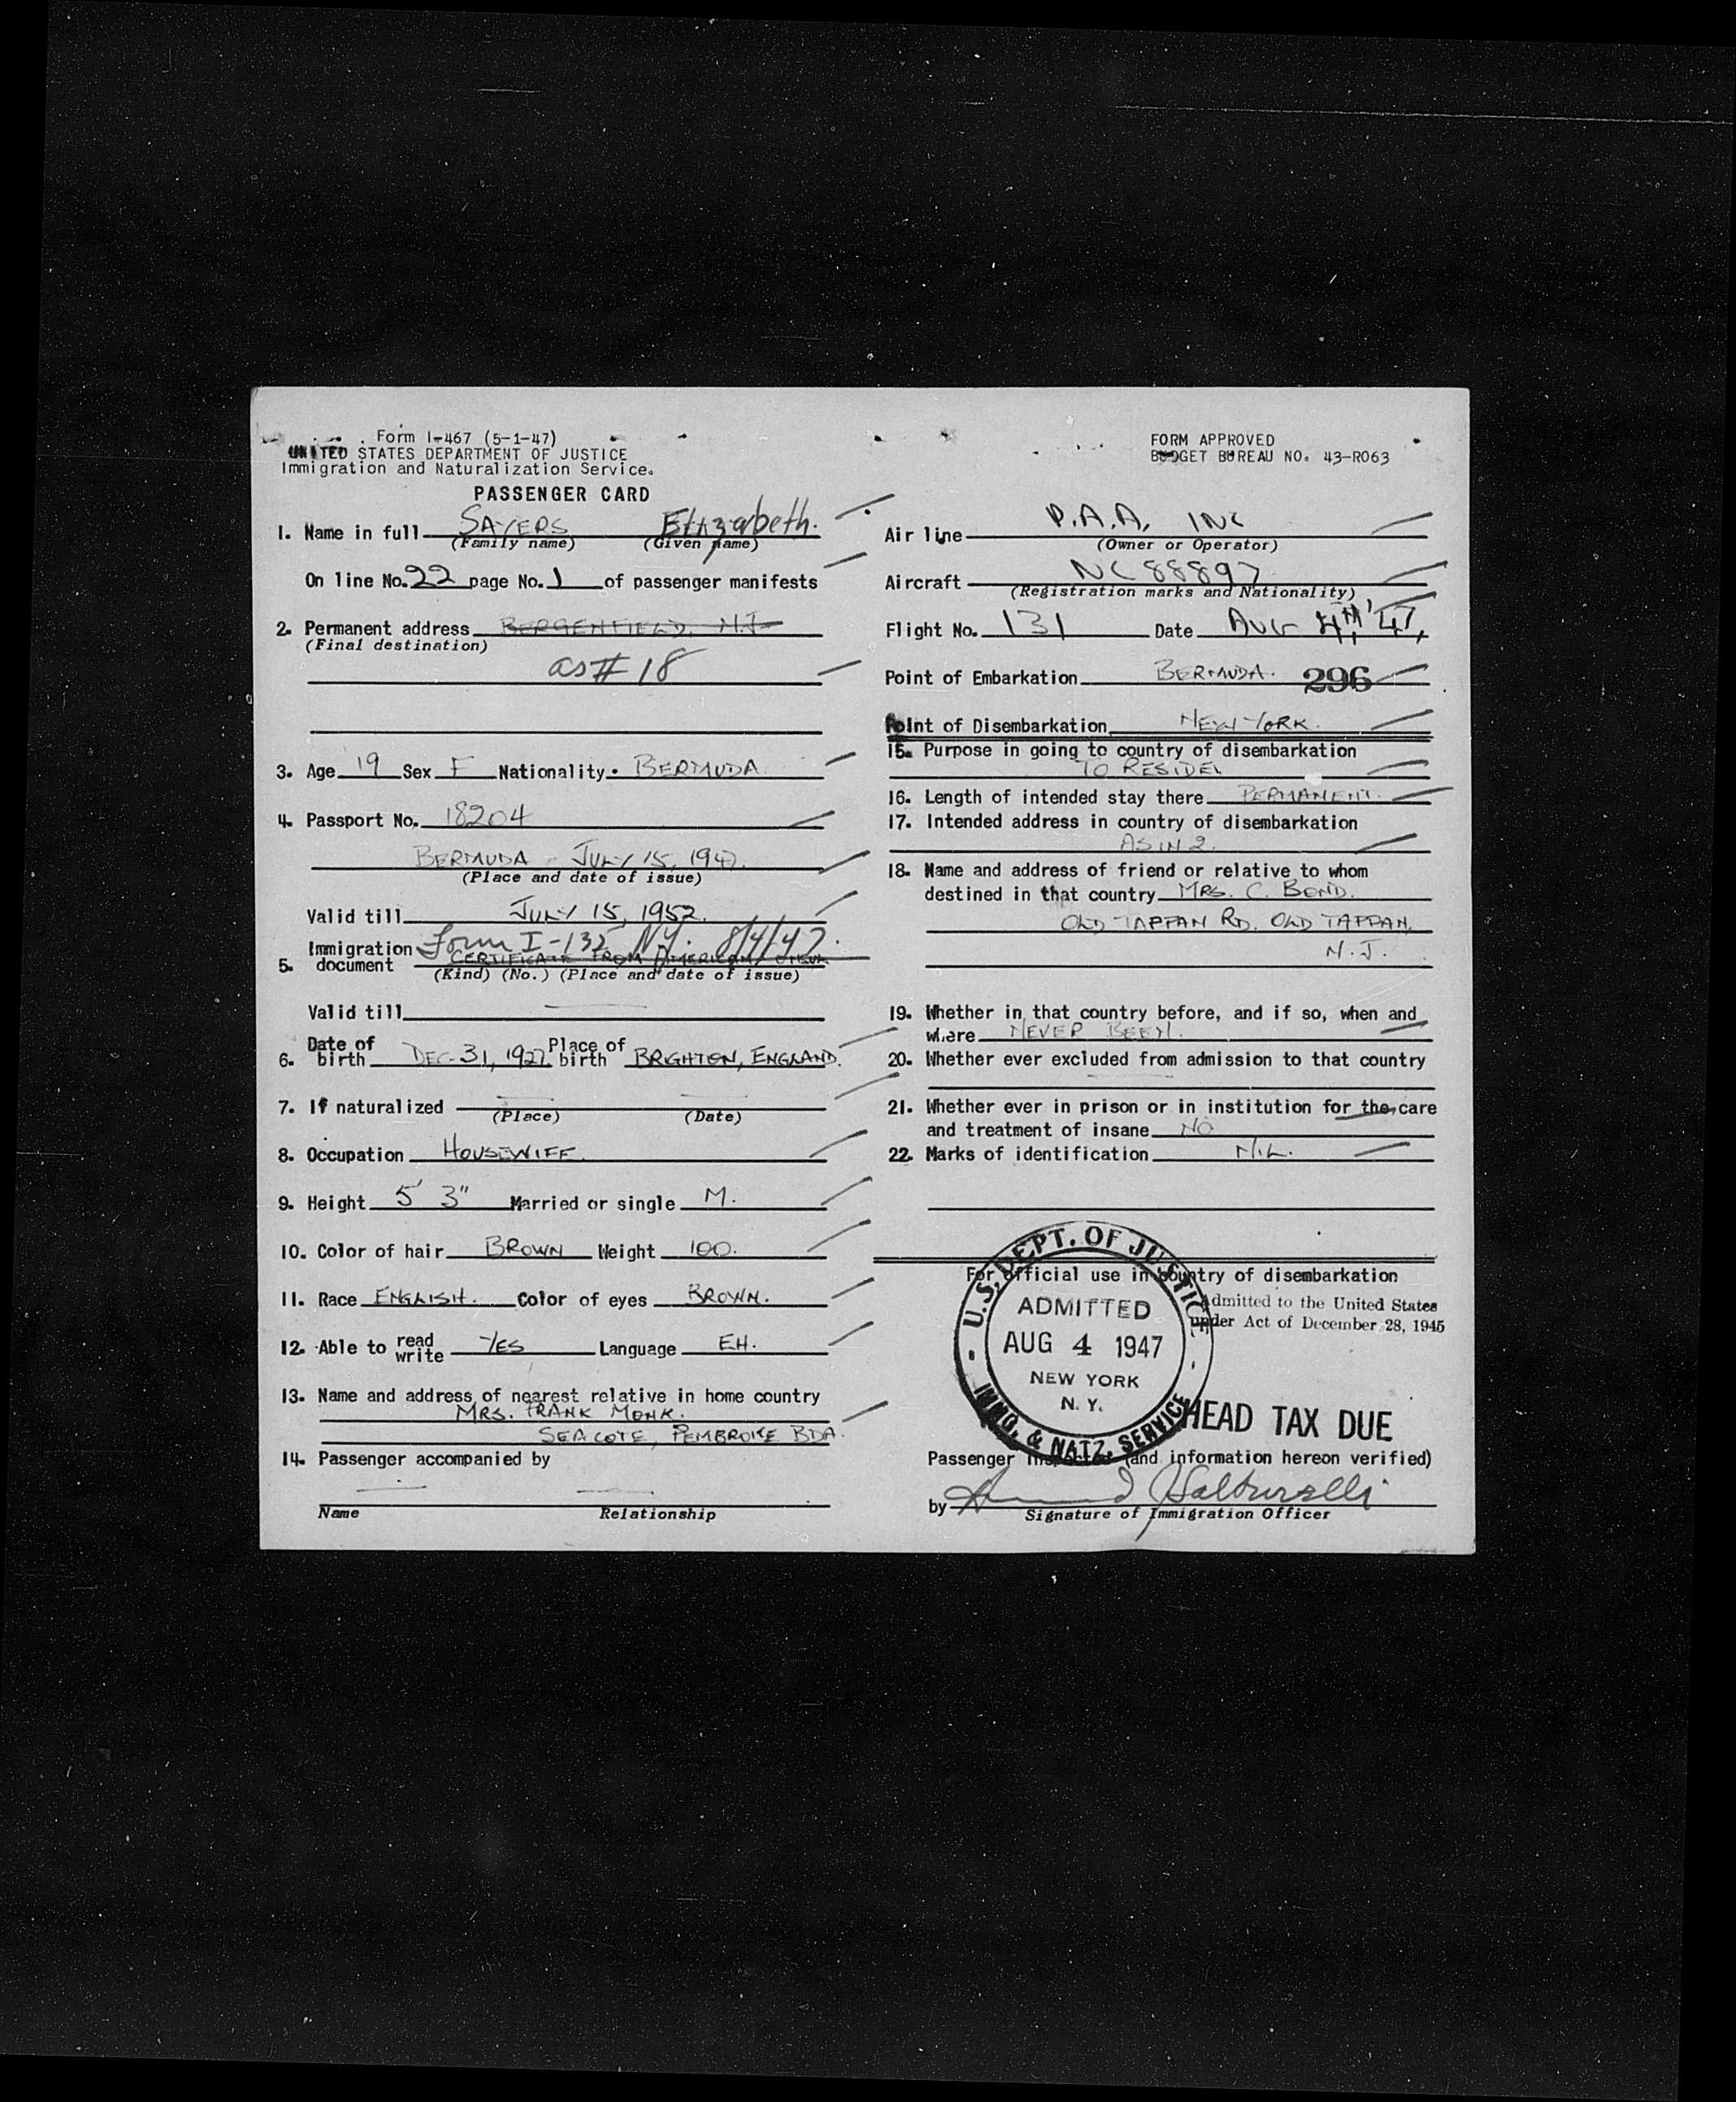 Form I-467 (5-1-47)
UNITED STATES DEPARTMENT OF JUSTICE
Immigration and Naturalization Service.
PASSENGER CARD
1. Name in full SAYERS Elizabeth.
(Family name) (Given name)
On line No. 22 page No. 1 of passenger manifests
2. Permanent address BERGENFIELD, N.J.
(Final destination)
as # 18
3. Age 19 Sex F Nationality BERMUDA
4. Passport No. 18204
BERMUDA - JULY 15, 1947.
(Place and date of issue)
Valid till JULY 15, 1952.
Immigration Form I-132 NY. 8/4/47.
5. document CERTIFICATE FROM AMERICAN
(Kind) (No.) (Place and date of issue)
Valid till
6. Date of birth DEC. 31, 1927. Place of birth BRIGHTON, ENGLAND.
7. If naturalized
(Place) (Date)
8. Occupation HOUSEWIFE.
9. Height 5' 3" Married or single M.
10. Color of hair BROWN Weight 100.
11. Race ENGLISH. Color of eyes BROWN.
12. Able to read write YES Language EH.
13. Name and address of nearest relative in home country
MRS. FRANK MONK.
SEACOTE, PEMBROKE BDA.
14. Passenger accompanied by
Name Relationship
FORM APPROVED
BUDGET BUREAU NO. 43-R063
Air line P.A.A. INC
(Owner or Operator)
Aircraft NC 88897
(Registration marks and Nationality)
Flight No. 131 Date AUG 4TH '47,
Point of Embarkation BERMUDA. 296
Point of Disembarkation NEW YORK.
15. Purpose in going to country of disembarkation
TO RESIDE.
16. Length of intended stay there PERMANENT.
17. Intended address in country of disembarkation
AS IN 2.
18. Name and address of friend or relative to whom
destined in that country MRS. C. BOND.
OLD TAPPAN RD. OLD TAPPAN,
N.J.
19. Whether in that country before, and if so, when and
where NEVER BEEN.
20. Whether ever excluded from admission to that country
21. Whether ever in prison or in institution for the care
and treatment of insane NO
22. Marks of identification NIL.
For official use in country of disembarkation
Admitted to the United States
under Act of December 28, 1945
U.S. DEPT. OF JUSTICE
ADMITTED
AUG 4 1947
NEW YORK
N. Y.
IMMG. & NATZ. SERVICE
HEAD TAX DUE
Passenger inspected (and information hereon verified)
by
Signature of Immigration Officer